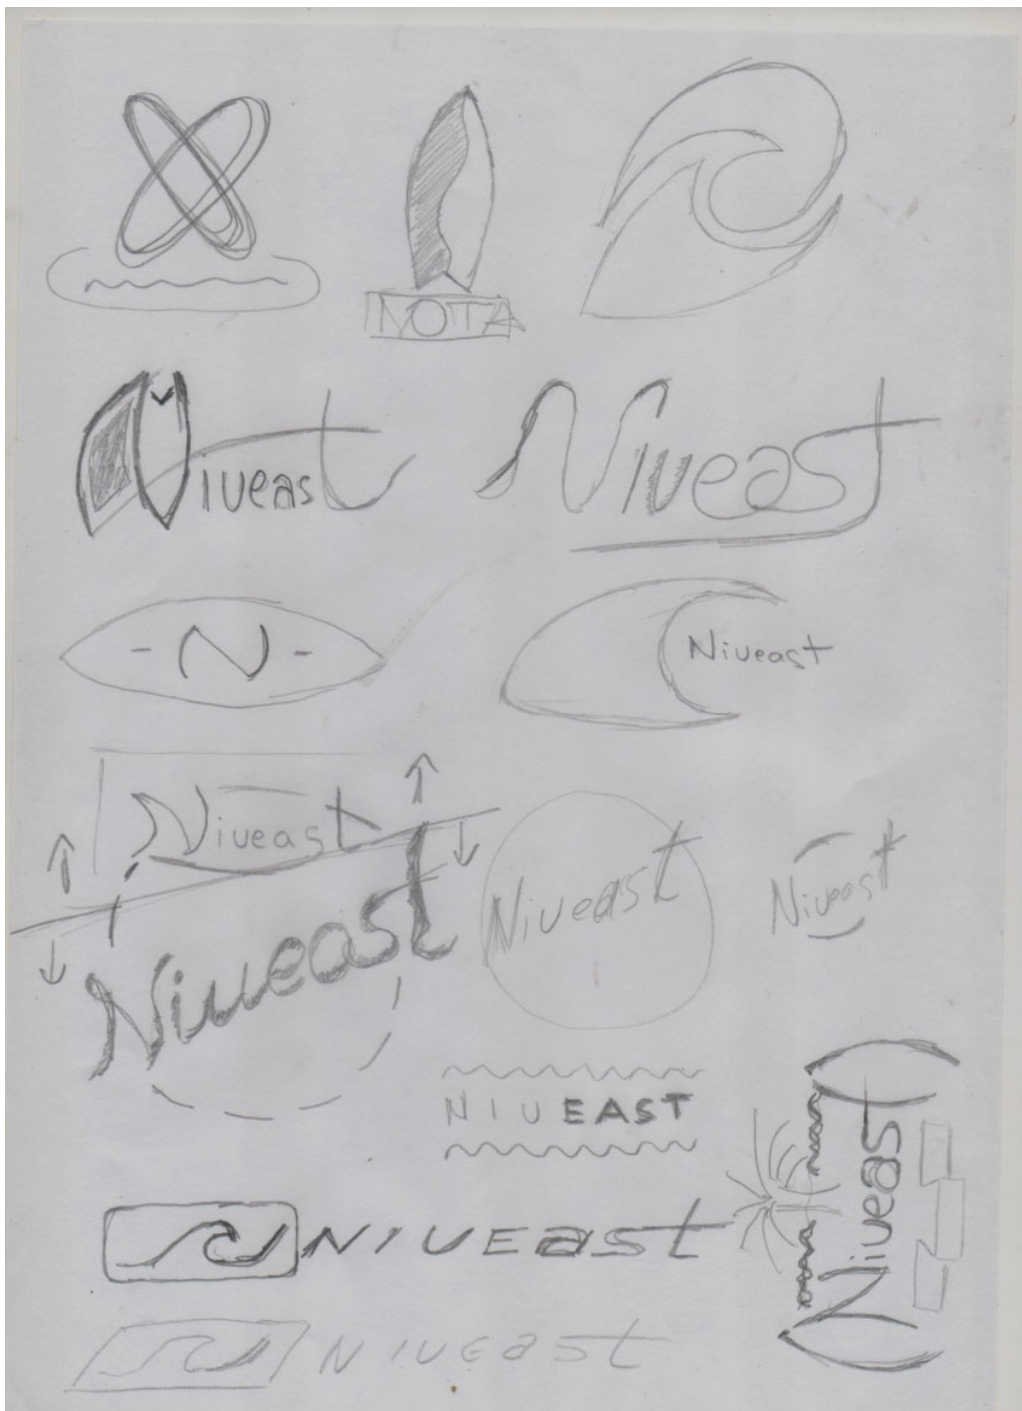 NOTA
Niueast
Niueast
- N -
Niueast
Niueast
Niueast
Niueast
Niueast
NIUEAST
Niueast
NIUEast
NIUEast